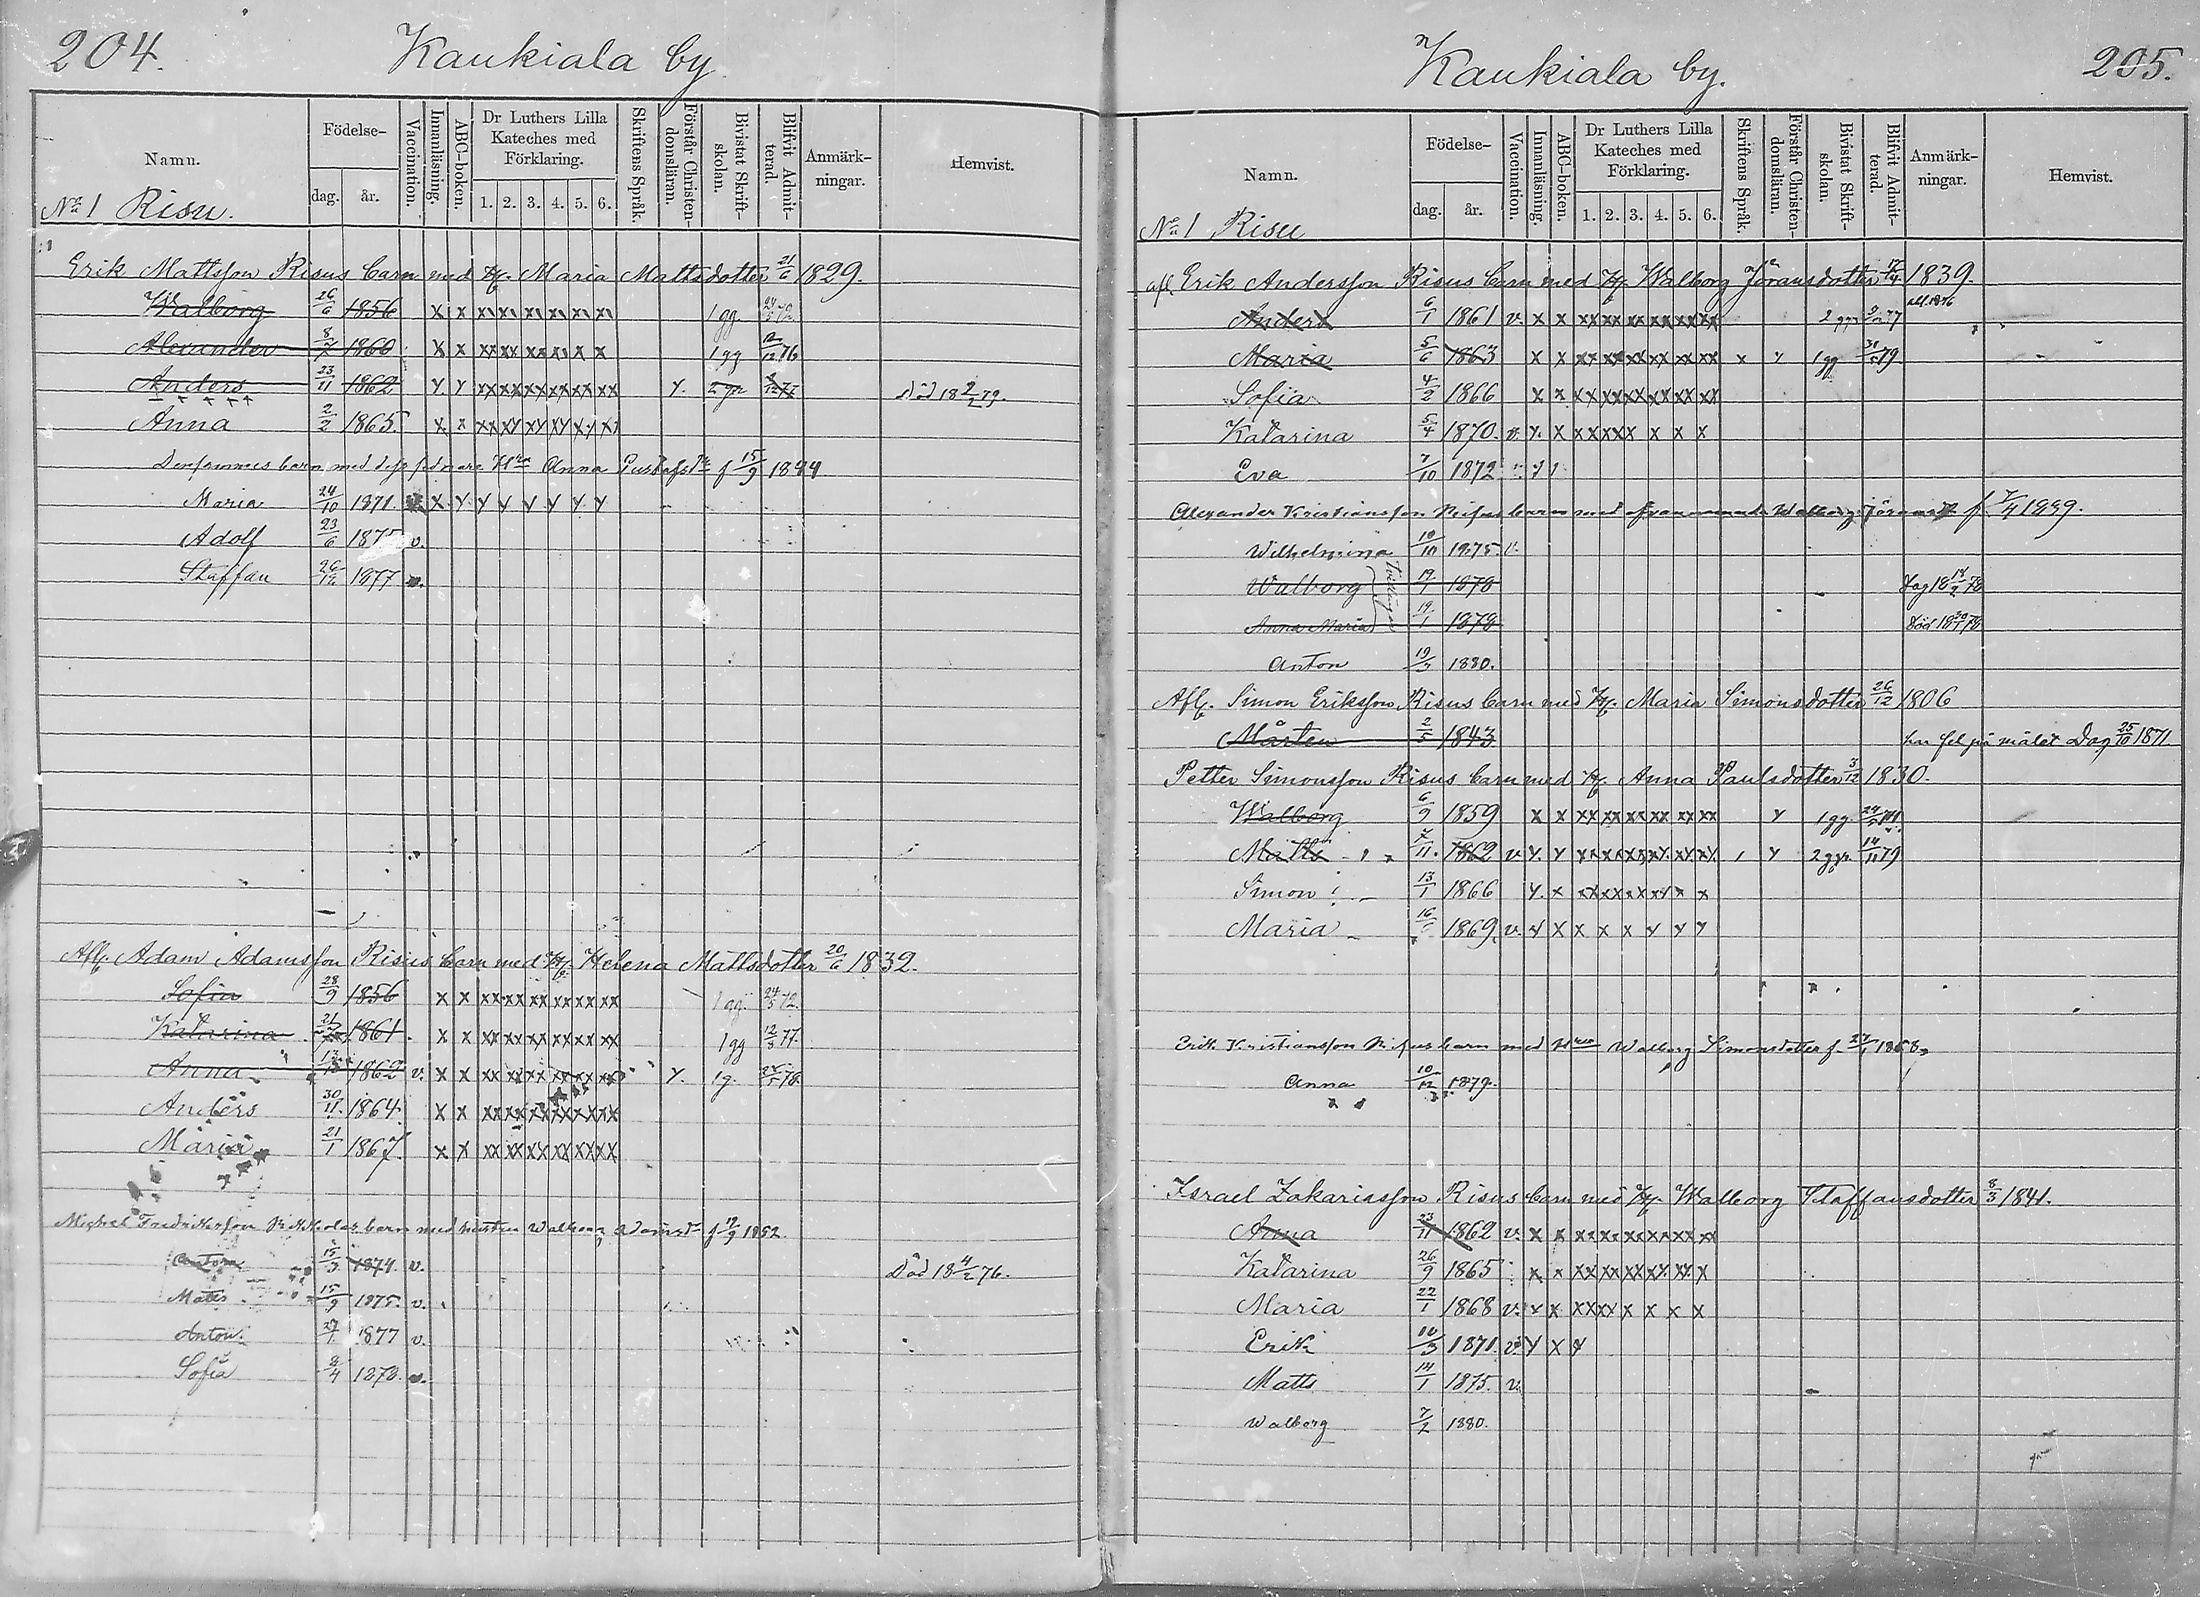 204. Kaukiala by
Namn. Födelse- dag. år. Vaccination. Innanläsning. ABC-boken. Dr Luthers Lilla Kateches med Förklaring. 1. 2. 3. 4. 5. 6. Skriftens Språk. Förstår Christen-domsläran. Bivistat Skrift-skolan. Blifvit Admit-terad. Anmärk-ningar. Hemvist.
No 1 Risu.
Erik Mattsson Risus barn med H. Maria Mattsdotter 21/6 1829.
Walborg 26/6 1856 x x x x x x x x 1 gg. 24/5 72.
Alexander 8/7 1860 x x xx xx xx xx x x 1 gg 12/12 76
Anders 23/11 1862 x x xx xx xx xx xx xx x. 2 gr Död 18 2/2 79.
Anna 2/2 1865. x x xx xx xx xx xx xx
Densammes barn med dess sednare Hru Anna Gustafsdr f 15/9 1844
Maria 24/10 1871. x x x x x x x x
Adolf 23/6 1875 v.
Staffan 26/12 1877 v.
Afl. Adam Adamsson Risus barn med H. Helena Mattsdotter 20/6 1832.
Sofia 28/9 1856 x x xx xx xx xx xx xx 1 gg. 24/5 72.
Katarina 21/7 1861. x x xx xx xx xx xx xx 1 gg 12/3 77.
Anna 1862 v. x x xx xx xx xx xx xx x. 1 g. 78.
Anders 30/11. 1864. x x xx xx xx xx xx xx
Maria 21/1 1867. x x xx xx xx xx xx xx
Michel Fredriksson barn med hustru Walborg Adamsdr f 1852.
Anton 15/3 1874. v. Död 18 4/2 76.
Matts 15/9 1875. v.
Anton. 27/1 1877 v.
Sofia 2/4 1878. v.
Kaukiala by. 205.
Namn. Födelse- dag. år. Vaccination. Innanläsning. ABC-boken. Dr Luthers Lilla Kateches med Förklaring. 1. 2. 3. 4. 5. 6. Skriftens Språk. Förstår Christen-domsläran. Bivistat Skrift-skolan. Blifvit Admit-terad. Anmärk-ningar. Hemvist.
No 1 Risu
afl. Erik Andersson Risus barn med H. Walborg Jöransdotter 17/4 1839.
Anders 6/1 1861 v. x x xx xx xx xx xx xx 2 ggr 77
Maria 5/6 1863 x x xx xx xx xx xx xx x x 1 gg 30/5 79
Sofia 4/2 1866 x x xx xx xx xx xx xx
Katarina 5/4 1870. v. x. x xx xx x x x x
Eva 7/10 1872
Alexander Kristiansson Risus barn med ofvannämnda Walborg Jöransdr f. 17/4 1839.
Wilhelmina 10/10 1875. v.
Walborg 19/1 1878 Dog 18 18/2 78
Tvillingar
Anna Maria 19/1 1878 Död 18 78
Anton 19/3 1880.
Afl. Simon Eriksson Risus barn med H. Maria Simonsdotter 26/12 1806
Mårten 2/5 1843 har fel på målet Dog 25/10 1871.
Petter Simonsson Risus barn med H. Anna Paulsdotter 3/12 1830.
Walborg 6/9 1859 x x xx xx xx xx xx xx x 1 gg.
Matts 7/11. 1862 v. x. x xx xx xx xx xx xx x 2 ggr. 14/11 79
Simon 13/1 1866 x. x xx xx xx xx x x
Maria 1869. v. x x x x x x x x
Erik Kristiansson Risus barn med Hru Walborg Simonsdotter f. 1858.
Anna 10/12 1879.
Israel Zakariasson Risus barn med H. Walborg Staffansdotter 8/3 1841.
Anna 23/11 1862 v. x x xx xx xx xx xx xx
Katarina 26/9 1865 x x xx xx xx xx xx x
Maria 22/1 1868 v. x x xx xx x x x x
Erik 10/3 1871. v. x x x
Matts 14/1 1875. v.
Walborg 7/2 1880.